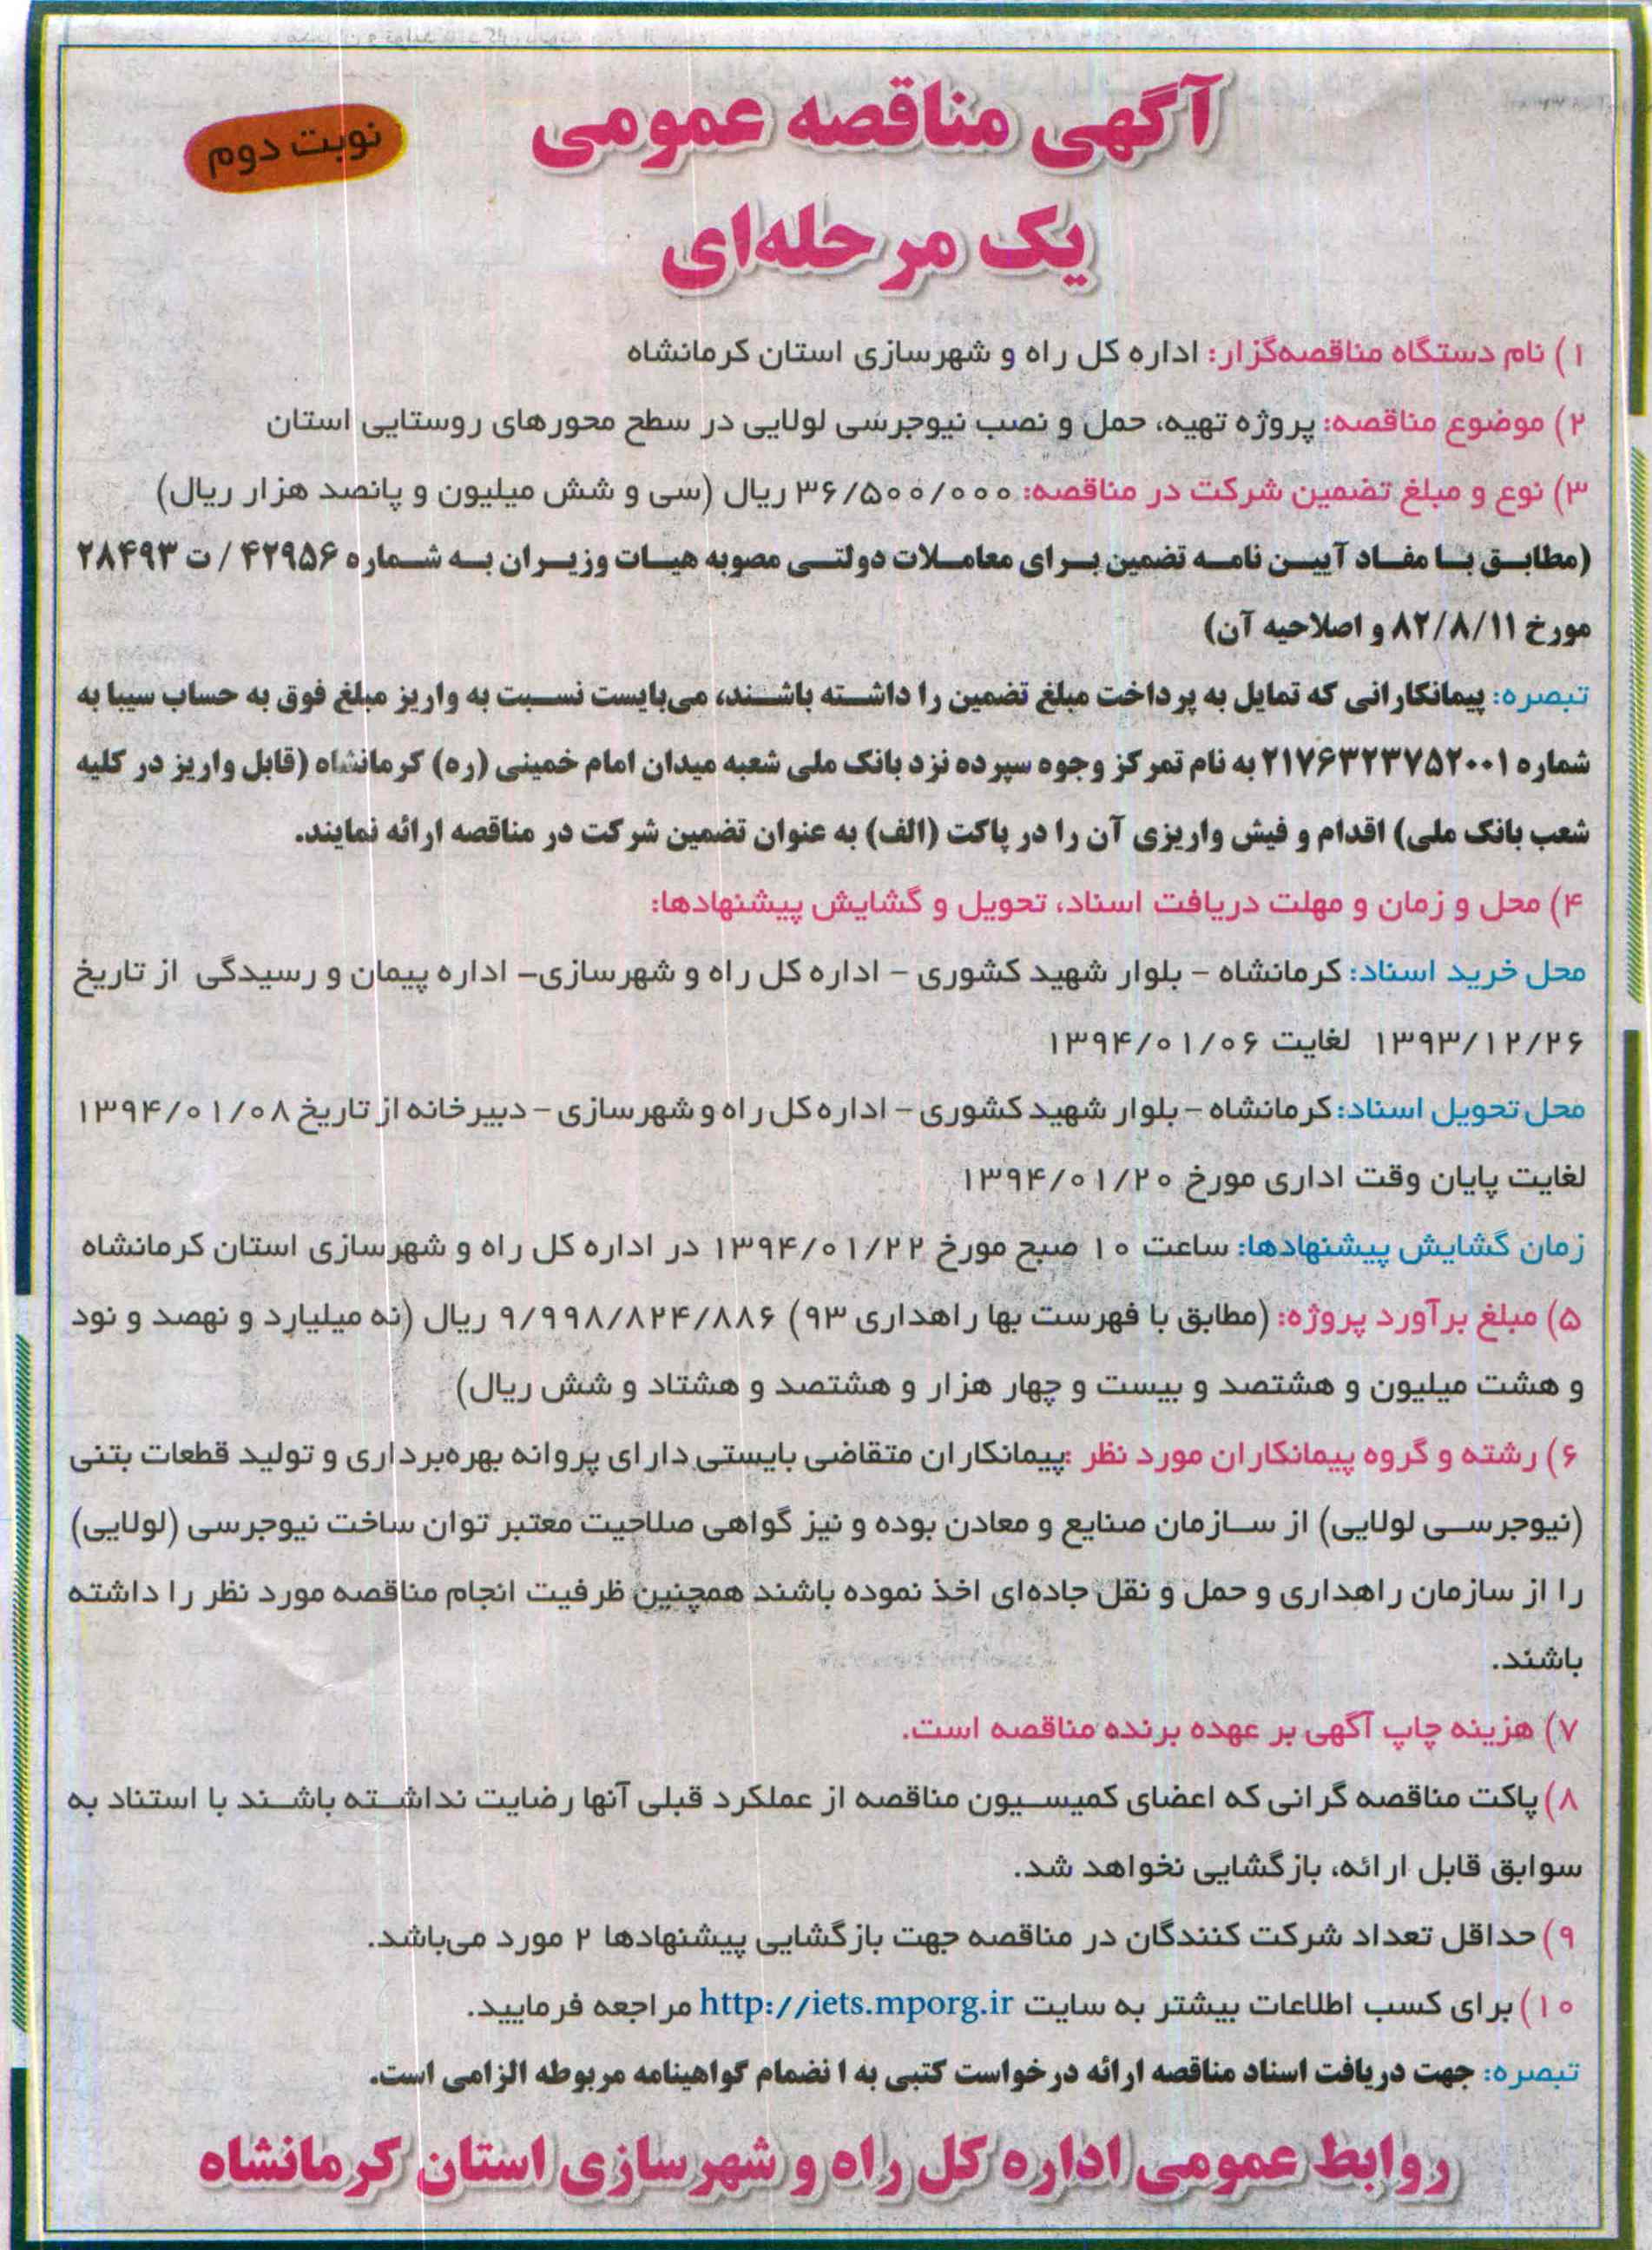 آگهی مناقصه عمومی
نوبت دوم
یک مرحله‌ای
۱) نام دستگاه مناقصه‌گزار: اداره کل راه و شهرسازی استان کرمانشاه
۲) موضوع مناقصه: پروژه تهیه، حمل و نصب نیوجرسی لولایی در سطح محورهای روستایی استان
۳) نوع و مبلغ تضمین شرکت در مناقصه: ۳۶/۵۰۰/۰۰۰ ریال (سی و شش میلیون و پانصد هزار ریال)
(مطابق با مفاد آیین نامه تضمین برای معاملات دولتی مصوبه هیات وزیران به شماره ۴۲۹۵۶ / ت ۲۸۴۹۳
مورخ ۸۲/۸/۱۱ و اصلاحیه آن)
تبصره: پیمانکارانی که تمایل به پرداخت مبلغ تضمین را داشته باشند، می‌بایست نسبت به واریز مبلغ فوق به حساب سیبا به
شماره ۲۱۷۶۳۲۳۷۵۲۰۰۱ به نام تمرکز وجوه سپرده نزد بانک ملی شعبه میدان امام خمینی (ره) کرمانشاه (قابل واریز در کلیه
شعب بانک ملی) اقدام و فیش واریزی آن را در پاکت (الف) به عنوان تضمین شرکت در مناقصه ارائه نمایند.
۴) محل و زمان و مهلت دریافت اسناد، تحویل و گشایش پیشنهادها:
محل خرید اسناد: کرمانشاه – بلوار شهید کشوری – اداره کل راه و شهرسازی– اداره پیمان و رسیدگی از تاریخ
۱۳۹۳/۱۲/۲۶ لغایت ۱۳۹۴/۰۱/۰۶
محل تحویل اسناد: کرمانشاه – بلوار شهید کشوری – اداره کل راه و شهرسازی – دبیرخانه از تاریخ ۱۳۹۴/۰۱/۰۸
لغایت پایان وقت اداری مورخ ۱۳۹۴/۰۱/۲۰
زمان گشایش پیشنهادها: ساعت ۱۰ صبح مورخ ۱۳۹۴/۰۱/۲۲ در اداره کل راه و شهرسازی استان کرمانشاه
۵) مبلغ برآورد پروژه: (مطابق با فهرست بها راهداری ۹۳) ۹/۹۹۸/۸۲۴/۸۸۶ ریال (نه میلیارد و نهصد و نود
و هشت میلیون و هشتصد و بیست و چهار هزار و هشتصد و هشتاد و شش ریال)
۶) رشته و گروه پیمانکاران مورد نظر :پیمانکاران متقاضی بایستی دارای پروانه بهره‌برداری و تولید قطعات بتنی
(نیوجرسی لولایی) از سازمان صنایع و معادن بوده و نیز گواهی صلاحیت معتبر توان ساخت نیوجرسی (لولایی)
را از سازمان راهداری و حمل و نقل جاده‌ای اخذ نموده باشند همچنین ظرفیت انجام مناقصه مورد نظر را داشته
باشند.
۷) هزینه چاپ آگهی بر عهده برنده مناقصه است.
۸) پاکت مناقصه گرانی که اعضای کمیسیون مناقصه از عملکرد قبلی آنها رضایت نداشته باشند با استناد به
سوابق قابل ارائه، بازگشایی نخواهد شد.
۹) حداقل تعداد شرکت کنندگان در مناقصه جهت بازگشایی پیشنهادها ۲ مورد می‌باشد.
۱۰) برای کسب اطلاعات بیشتر به سایت http://iets.mporg.ir مراجعه فرمایید.
تبصره: جهت دریافت اسناد مناقصه ارائه درخواست کتبی به ا نضمام گواهینامه مربوطه الزامی است.
روابط عمومی اداره کل راه و شهرسازی استان کرمانشاه